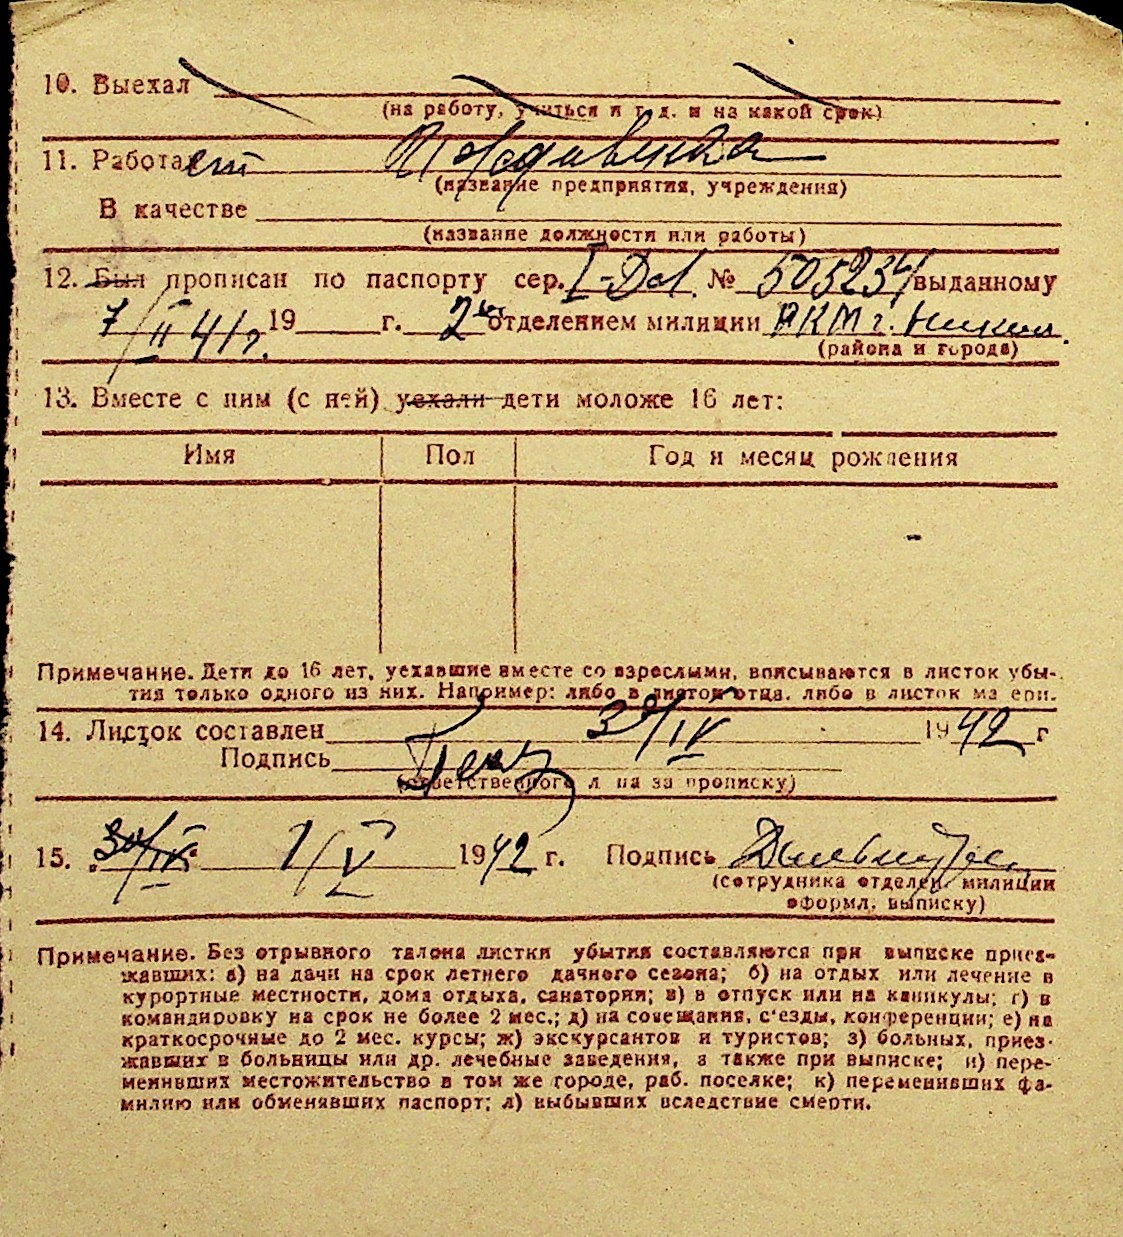 10. Выехал
(на работу, учиться и т. д. и на какой срок)
11. Работает Иждивенка
(название предприятия, учреждения)
В качестве
(название должности или работы)
12. Был прописан по паспорту сер. № выданному
7/II 41 г. 19 г. 2 отделением милиции РКМ г.
(района и города)
13. Вместе с ним (с ней) уехали дети моложе 16 лет:
Имя Пол Год и месяц рождения
Примечание. Дети до 16 лет, уехавшие вместе со взрослыми, вписываются в листок убы-
тия только одного из них. Например: либо в листок отца, либо в листок матери.
14. Листок составлен 30/IV 1942 г
Подпись
(ответственного лица за прописку)
15. 30/IV 1/V 1942 г. Подпись
(сотрудника отделен. милиции
оформл. выписку)
Примечание. Без отрывного талона листки убытия составляются при выписке приез-
жавших: а) на дачи на срок летнего дачного сезона; б) на отдых или лечение в
курортные местности, дома отдыха, санатории; в) в отпуск или на каникулы; г) в
командировку на срок не более 2 мес.; д) на совещания, с'езды, конференции; е) на
краткосрочные до 2 мес. курсы; ж) экскурсантов и туристов; з) больных, приез-
жавших в больницы или др. лечебные заведения, а также при выписке; и) пере-
менивших местожительство в том же городе, раб. поселке; к) переменивших фа-
милию или обменявших паспорт; л) выбывших вследствие смерти.